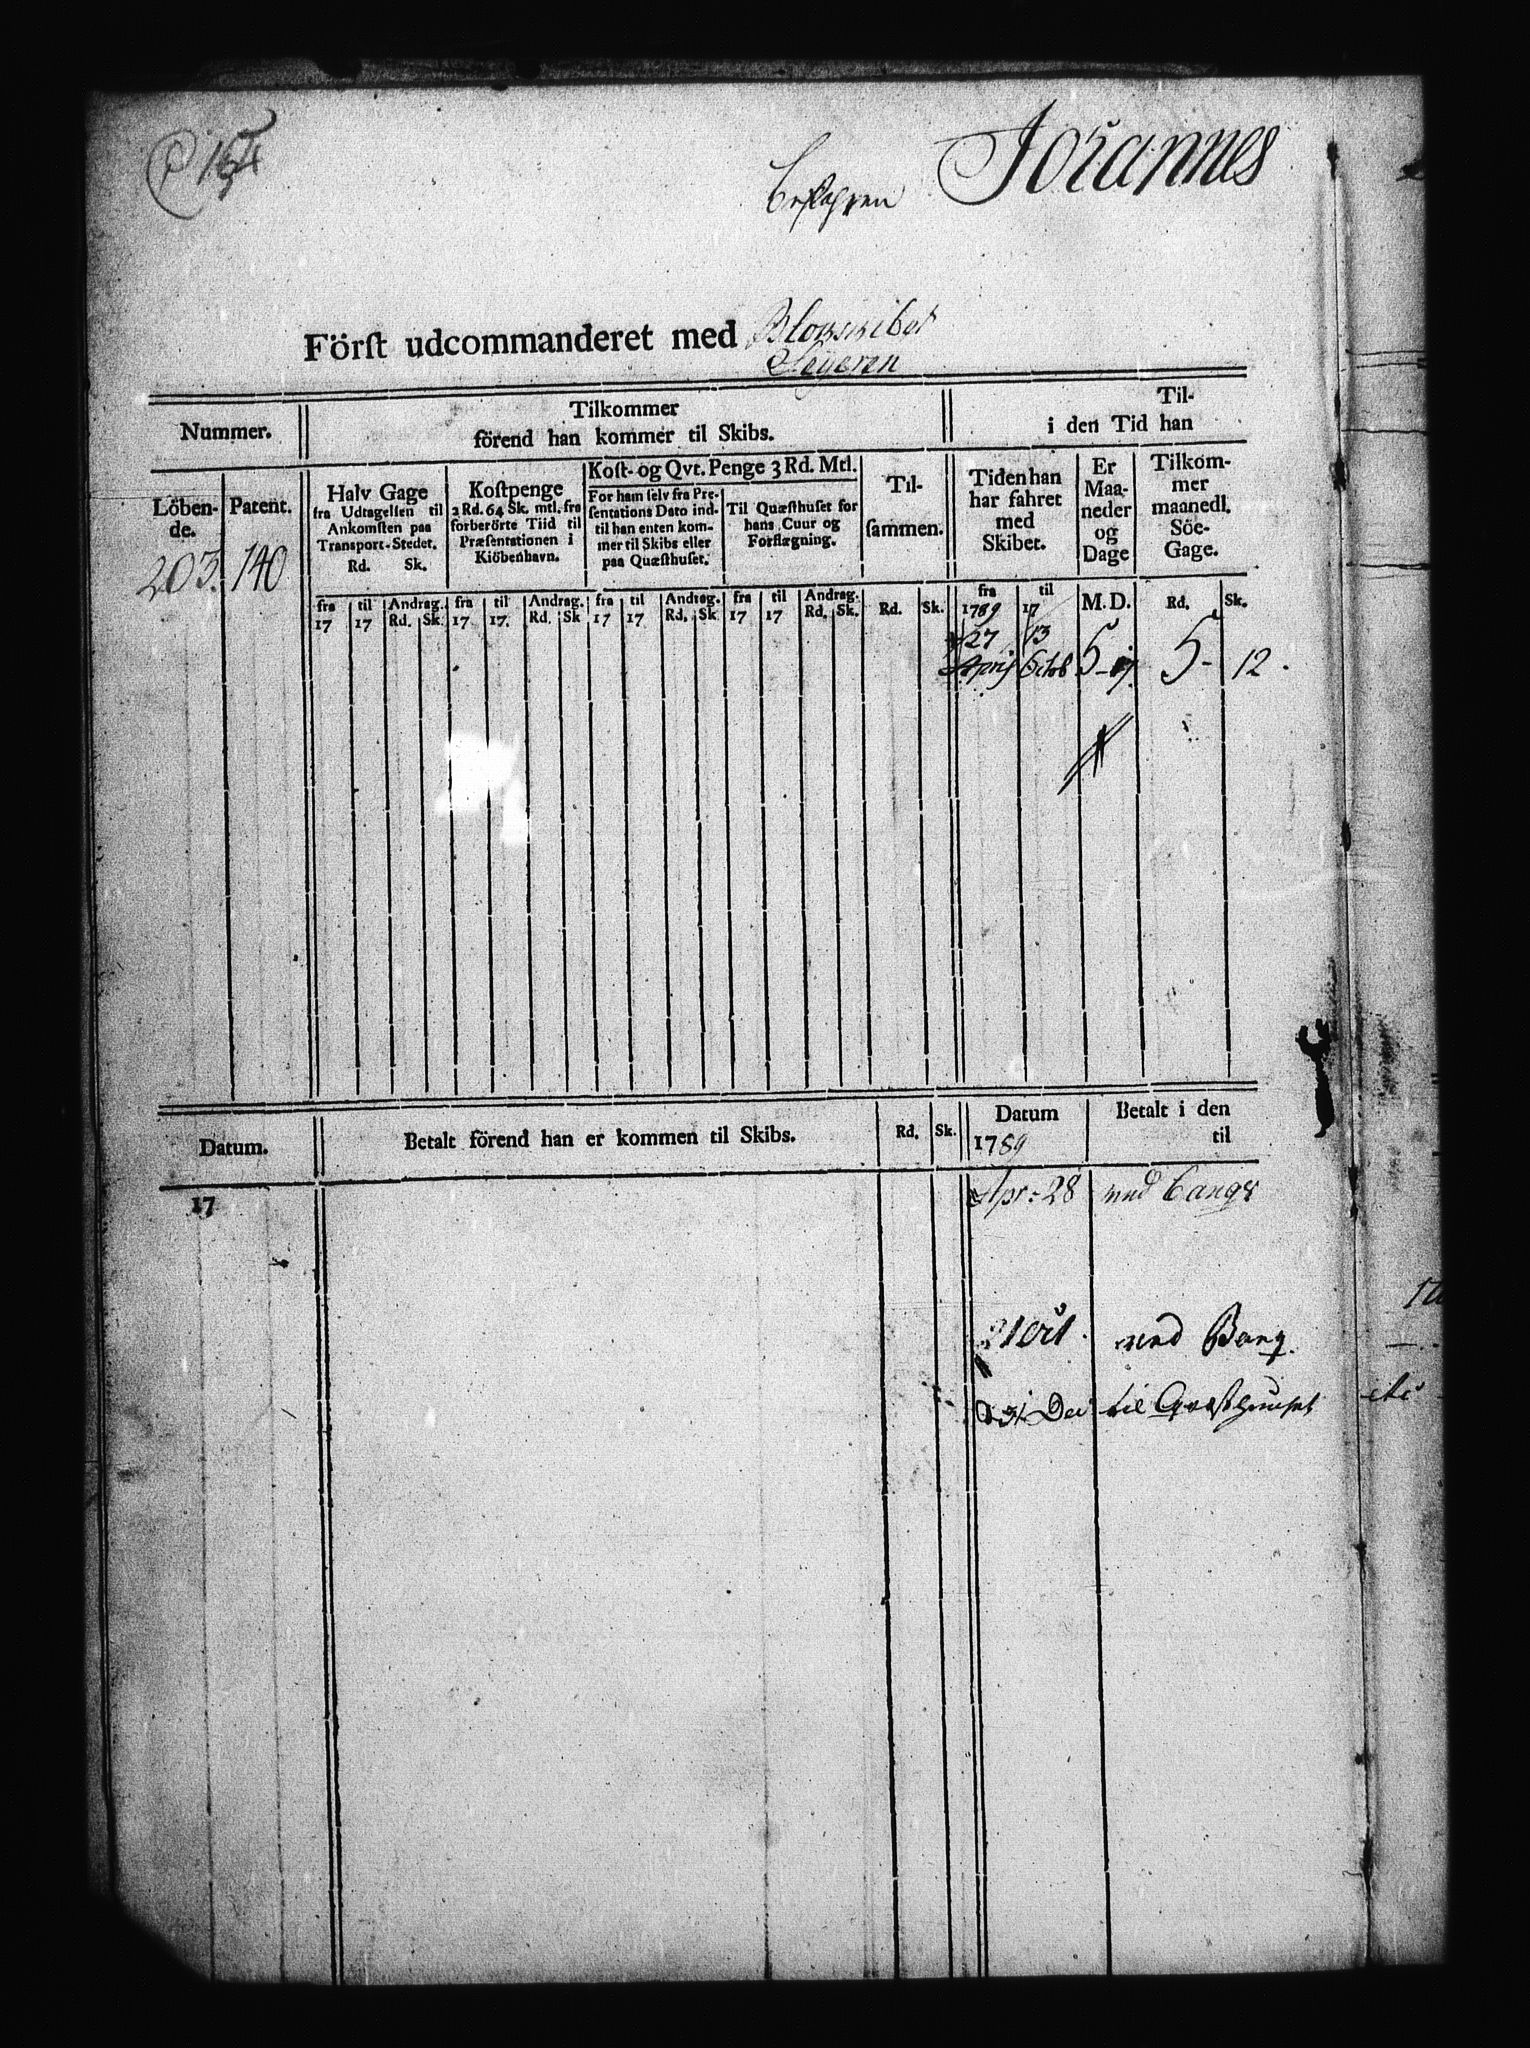 Johannes
Befahren
Först udcommanderet med Blokskibet
Seyeren
Nummer.
Tilkommer
förend han kommer til Skibs.
Til-
i den Tid han
Löben-
de.
Patent.
Halv Gage
fra Udtagelsen til
Ankomsten paa
Transport-Stedet.
Rd. Sk.
Kostpenge
2 Rd. 64 Sk. mtl. fra
forberörte Tiid til
Præsentationen i
Kiöbenhavn.
Kost- og Qvt. Penge 3 Rd. Mtl.
For ham selv fra Pre-
sentations Dato ind-
til han enten kom-
mer til Skibs eller
paa Quæsthuset.
Til Quæsthuset for
hans Cuur og
Forflægning.
Til-
sammen.
Tiden han
har fahret
med
Skibet.
Er
Maa-
neder
og
Dage
Tilkom-
mer
maanedl.
Söe-
Gage.
203. 140
fra til Andrag. fra til Andrag. fra til Andrag. fra til Andrag. Rd. Sk. fra til M. D. Rd. Sk.
17 17 Rd. Sk 17 17. Rd. Sk 17 17 Rd. Sk 17 17 Rd. Sk. 1789 17
27 13
April Octob 5 5 - 12.
Datum.
Betalt förend han er kommen til Skibs.
Rd. Sk.
Datum
1789
Betalt i den
til
17
Apr: 28 ved
ved Bang.
31 Dec til Qvæsthuuset